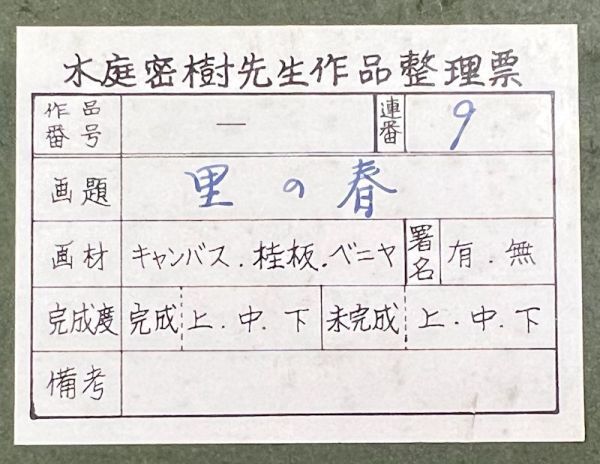 水庭密樹先生作品整理票
作品番号 一 連番 9
画題 里の春
画材 キャンバス.桂板.ベニヤ 署名 有.無
完成度 完成 上.中.下 未完成 上.中.下
備考